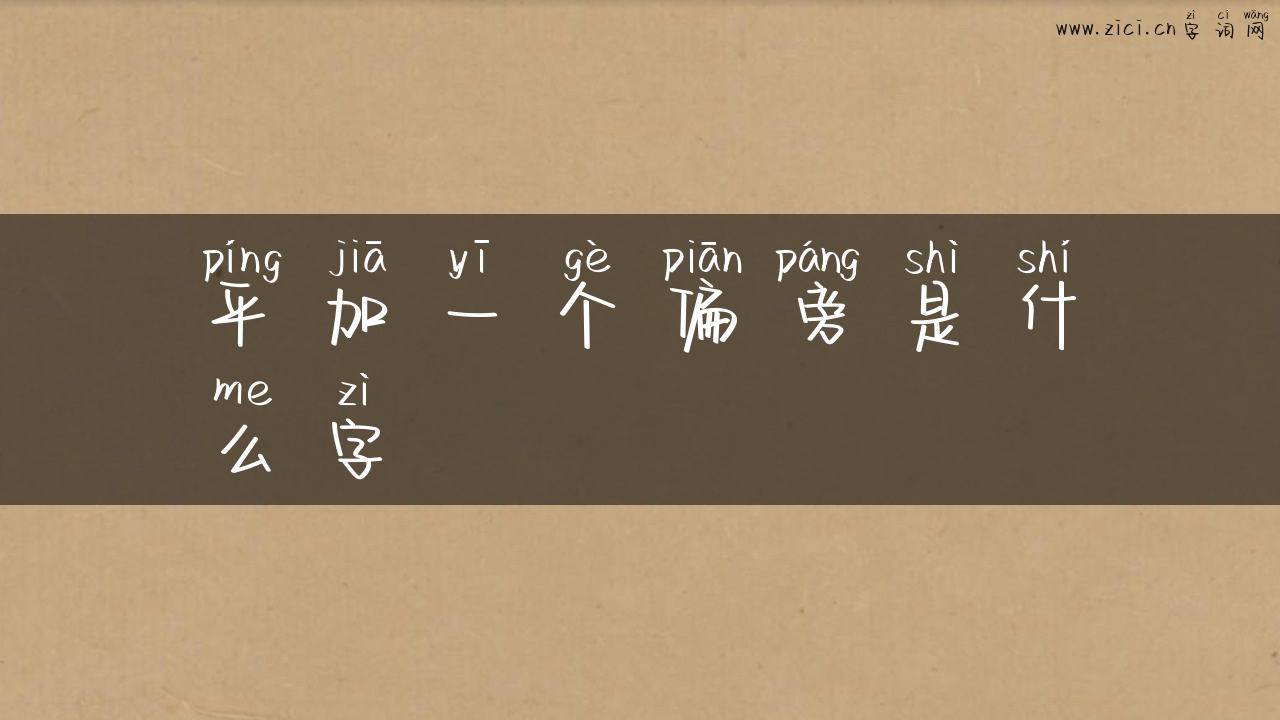 zì cí wǎng
www.zici.cn 字词网
píng jiā yī gè piān páng shì shí
平加一个偏旁是什
me zì
么字